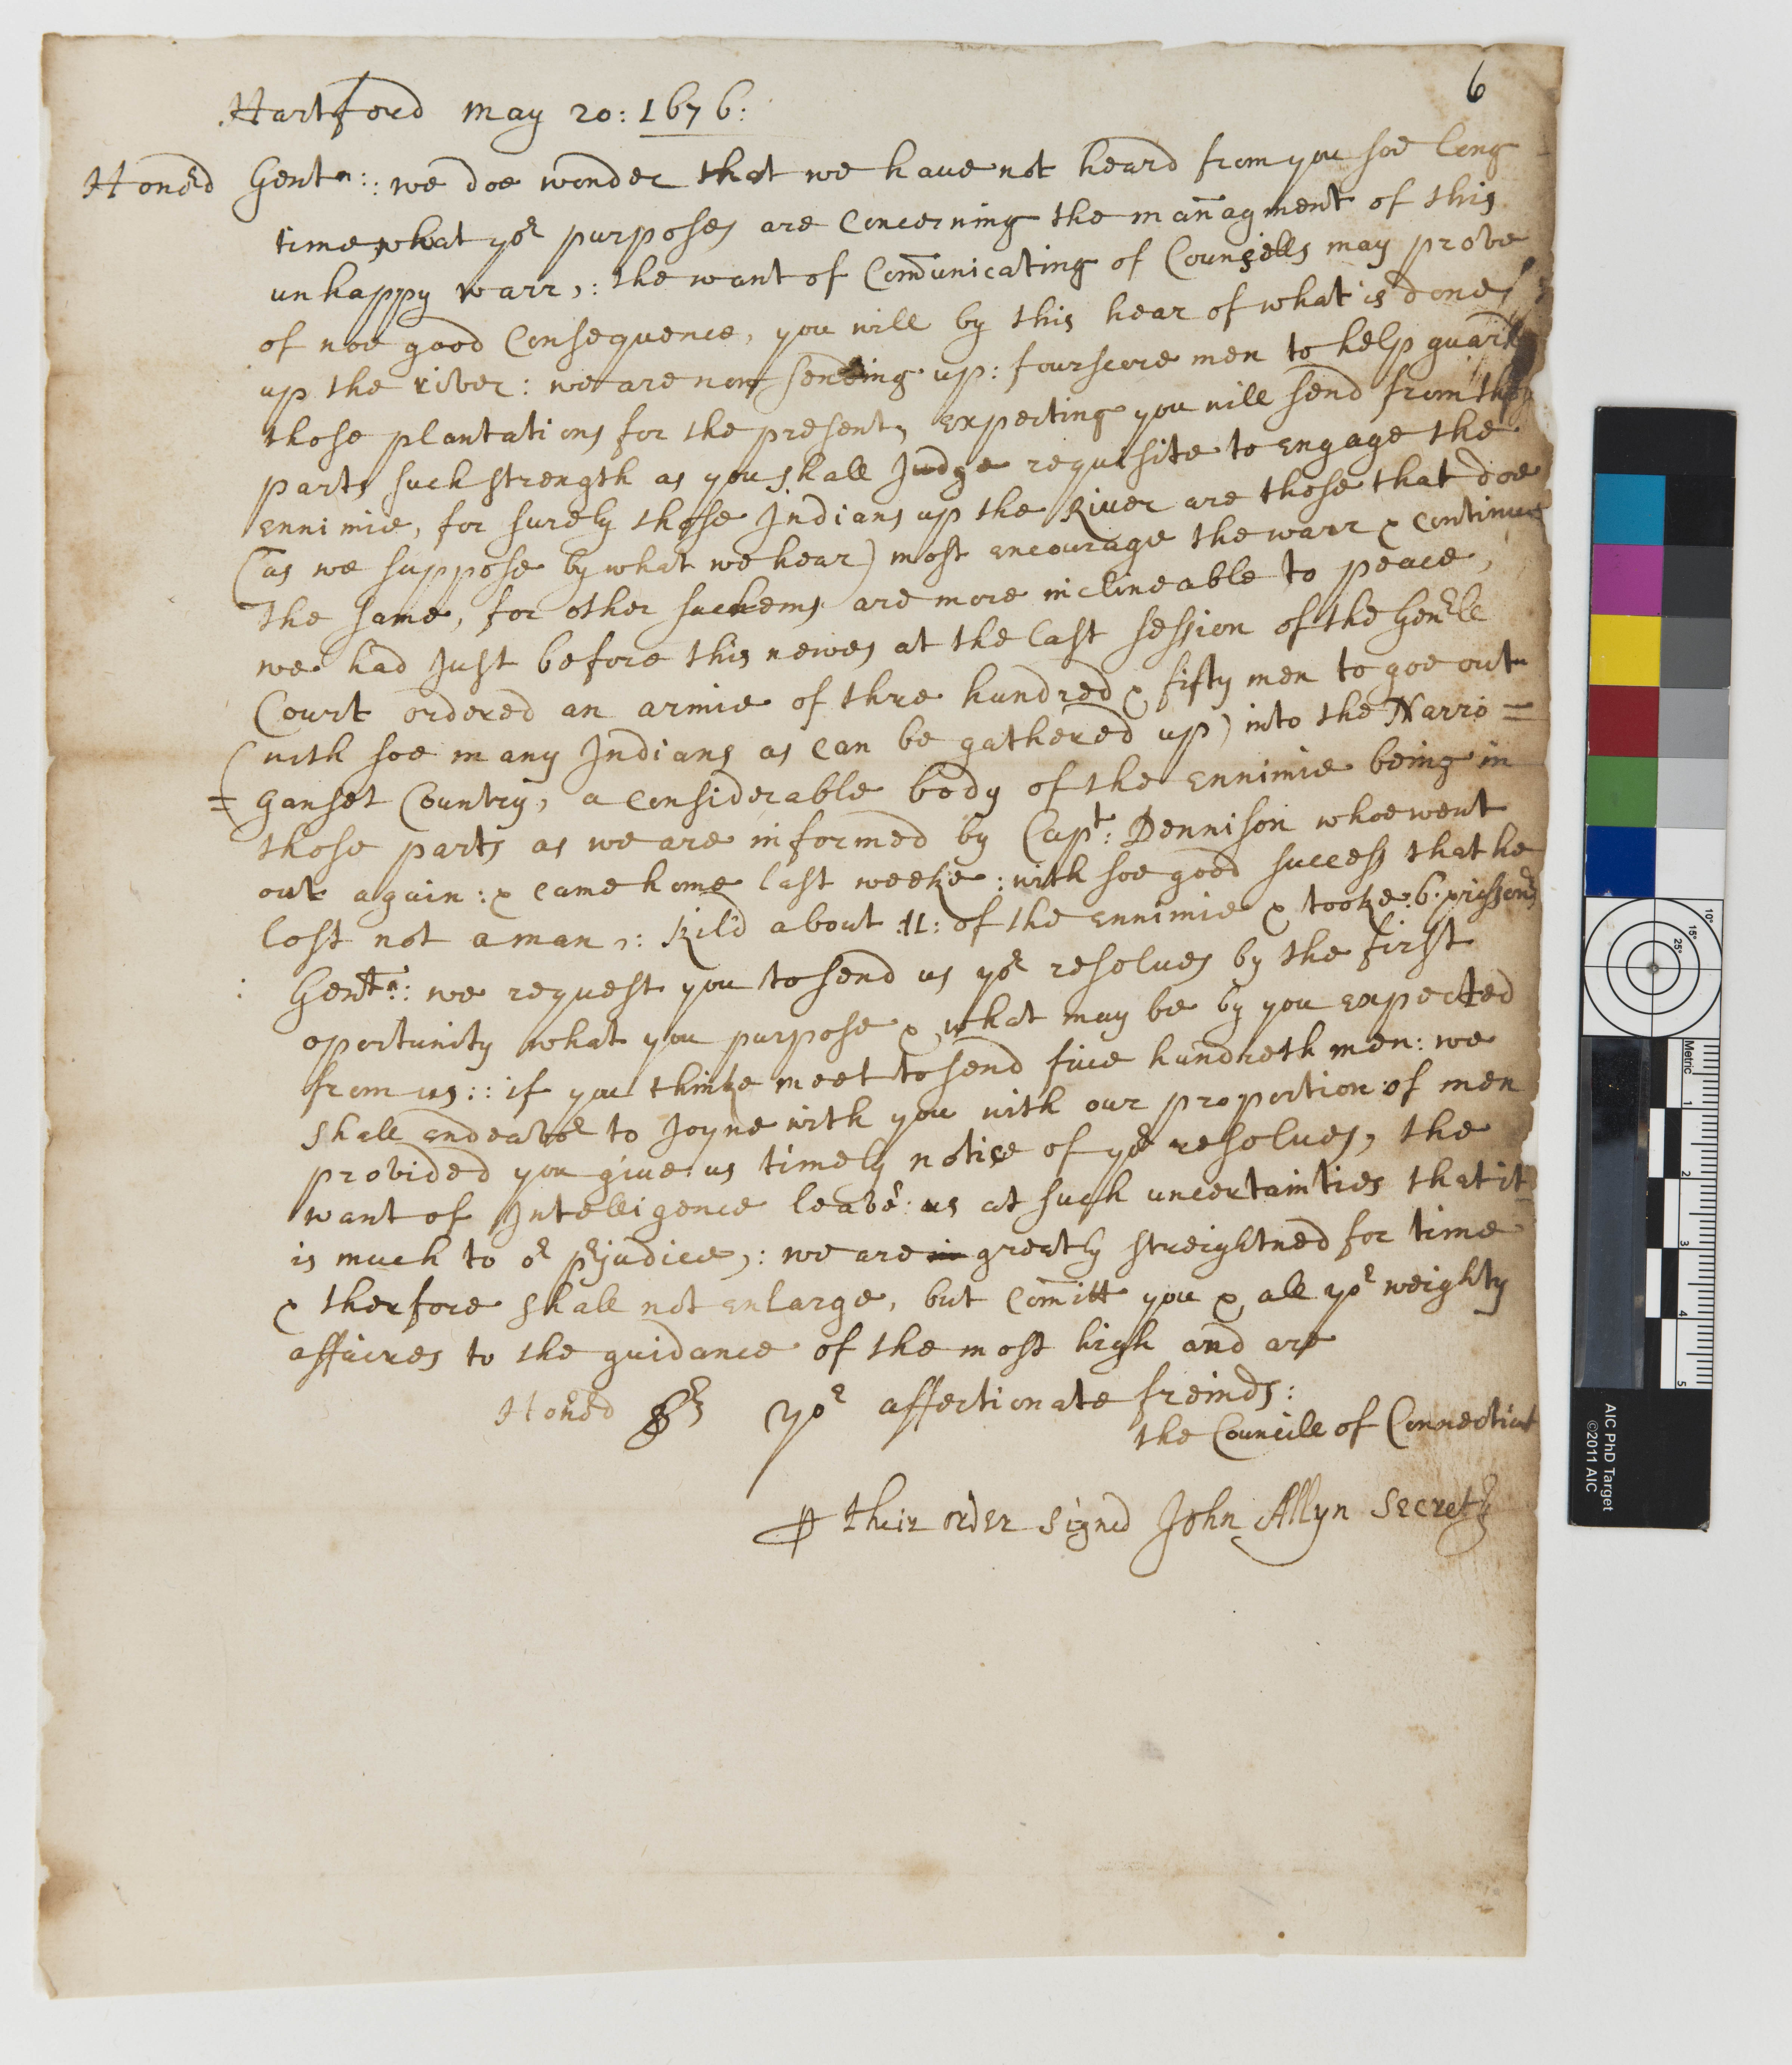 6
Hartford May 20: 1676:
Honerd Gentn:: we doe wonder that we haue not heard from you soe long
time, what yor purposes are Concerning the mañagment of this
unhappy warr,: the want of Com̄unicating of Counsells may prove
of noe good Consequence, you will by this hear of what is done
up the river: we are now sending up: fourscore men to help guard
those plantations for the present, Expecting you will send from thos
parts such strength as you shall Judge requisite to Engage the
Ennimie, for surely those Indians up the River are those that doe
(as we suppose by what we hear) most encourage the warr & continue
the same, for other sachems are more inclineable to peace,
we had Just before this newes at the last session of the Generll
Court ordered an armie of thre hundred & fifty men to goe out
(with soe many Indians as can be gathered up) into the Narro=
=ganset Country, a considerable body of the Ennimie being in
those parts as we are informed by Capt: Dennison whoe went
out again: & came home last weeke: with soe good success that he
lost not a man,: Kild about :11: of the Ennimie & tooke :6: prissonrs
: Gentn: we request you to send us yor resolues by the first
oportunity what you purpose & what may be by you Expected
from us:: if you thinke meet to send fiue hundreth men: we
shall Endeavor to Joyne with you with our proportion of men
provided you giue us timely notice of yor resolues, the
want of Intelligence leaves us at such uncertainties that it
is much to or prjudice,: we are in greatly streightned for time
& therfore shall not Enlarge, but Com̄itt you & all yor weighty
affaires to the guidance of the most high and are
Honerd Srs yor affectionate freinds:
the Councill of Connecticut
⅌ their order signd John Allyn Secretry
AIC PhD Target
©2011 AIC
Metric
1
2
3
4
5
10°
15°
25°